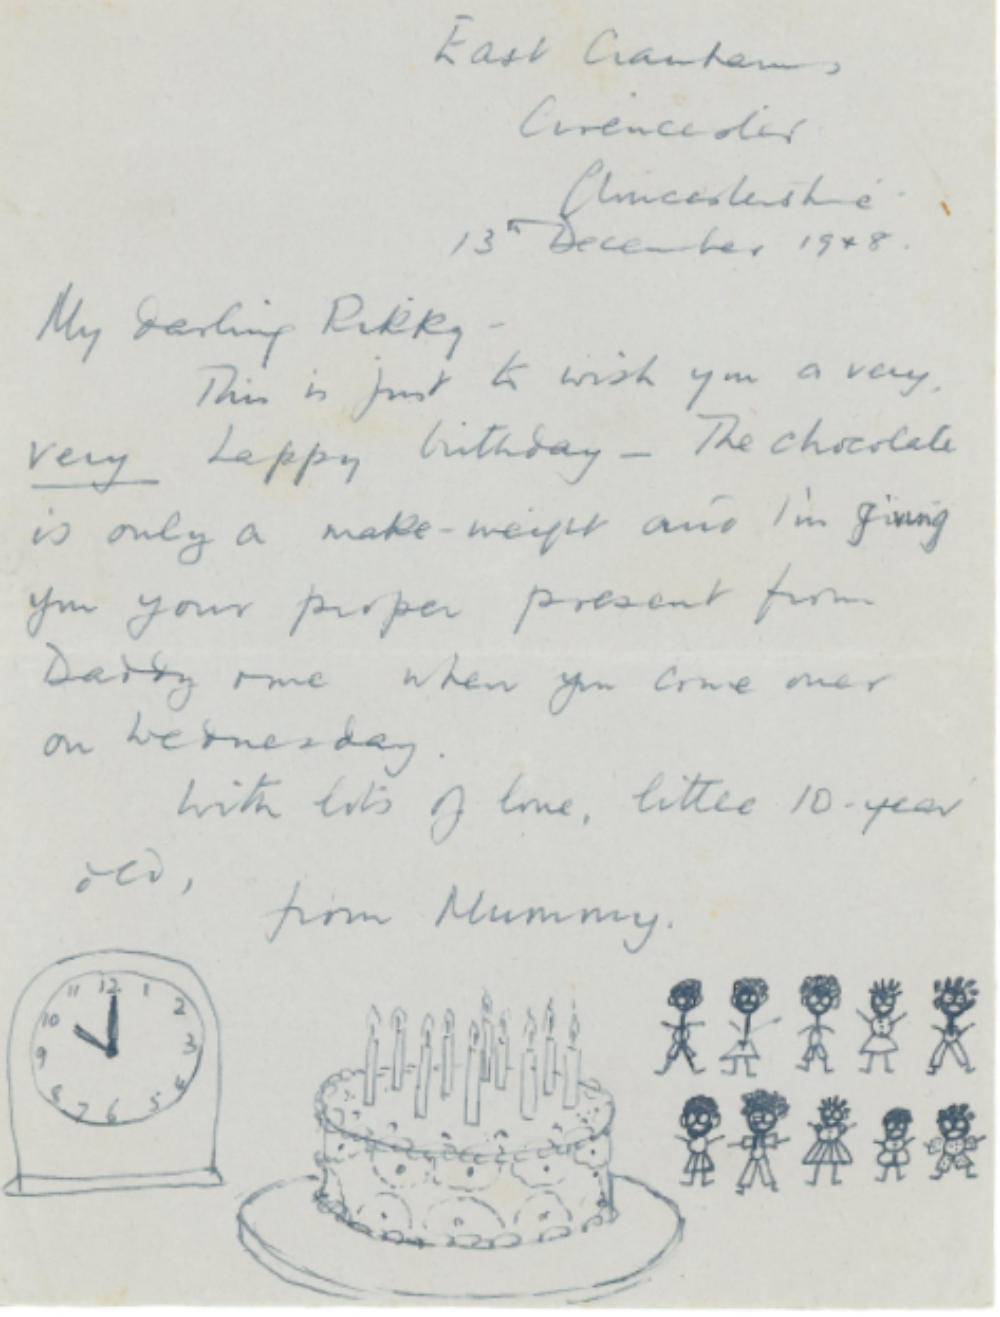 East Cranhams
Cirencester
Gloucestershire
13th December 1948.
My darling Rikky -
This is just to wish you a very,
very happy birthday - The chocolate
is only a make-weight and I'm giving
you your proper present from
Daddy & me when you come over
on Wednesday.
With lots of love, little 10-year
old,
from Mummy.
11 12 1
10 2
9 3
8 4
7 6 5